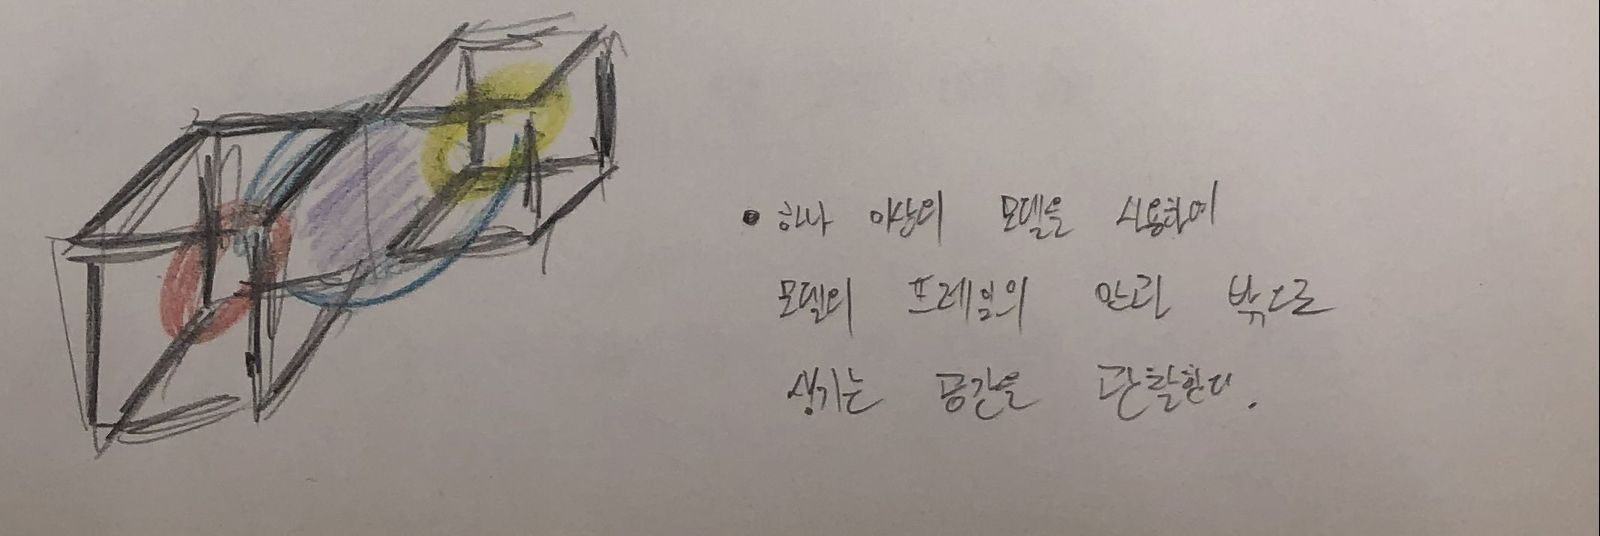 • 하나 이상의 모델을 사용하여
모델의 프레임의 안과 밖으로
생기는 공간을 관찰한다.